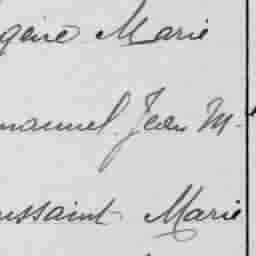 gène Marie
manuel Jean M
ussaint Marie